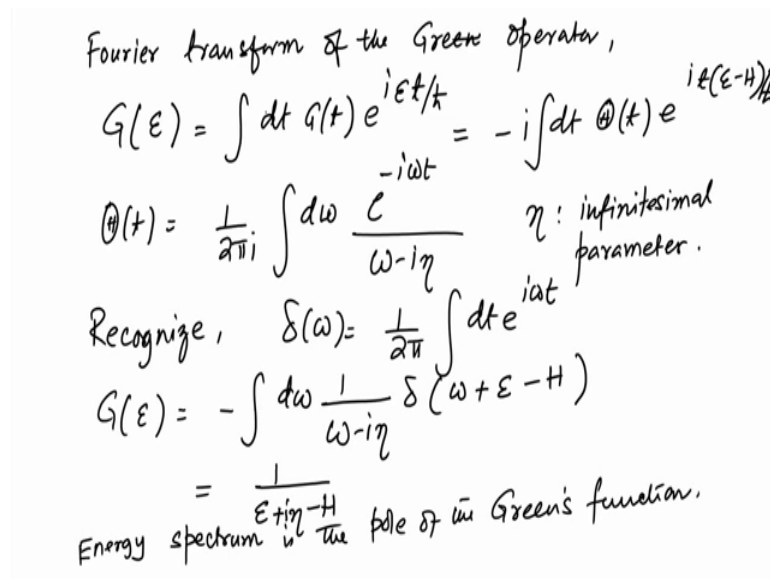 Fourier transform of the Green operator,
G(ε) = ∫ dt G(t) e^{iεt/ħ} = -i ∫ dt Θ(t) e^{it(ε-H)/ħ}
Θ(t) = 1/2πi ∫ dω e^{-iωt}/(ω-iη) η : infinitesimal parameter.
Recognize, δ(ω) = 1/2π ∫ dt e^{iωt}
G(ε) = - ∫ dω 1/(ω-iη) δ(ω + ε - H)
= 1/(ε+iη-H)
Energy spectrum is the pole of the Green's function.